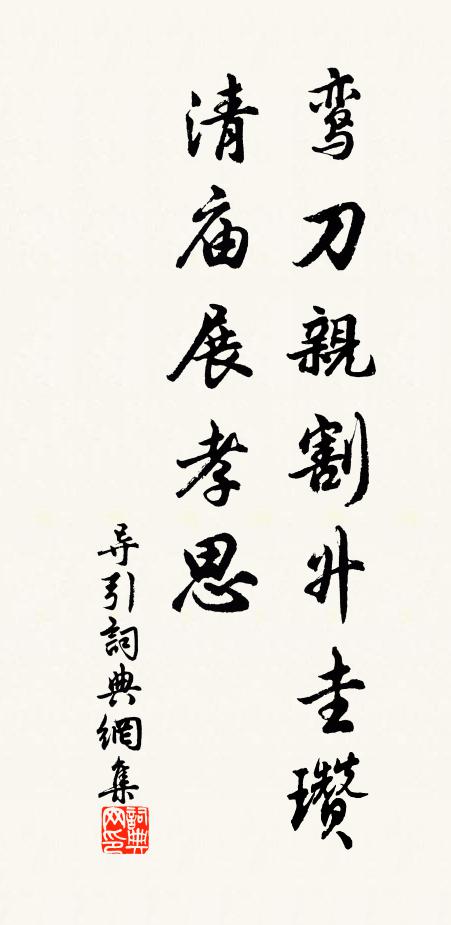 鸾刀親割升圭瓒
清庙展孝思
导引詞典網集
詞典网印